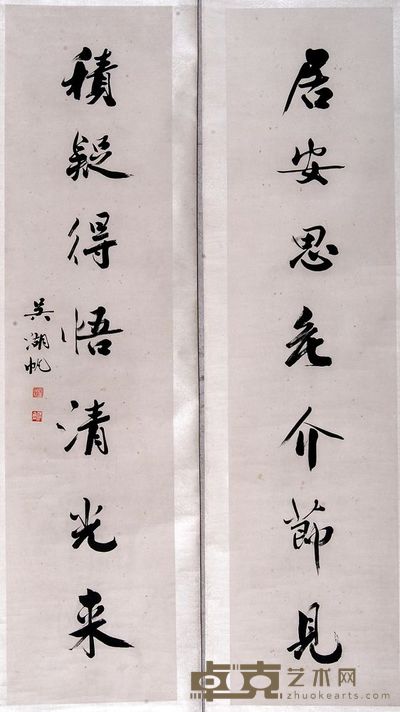 居安思危介節見
積疑得悟清光来
吴湖帆
卓克艺术网
zhuokearts.com